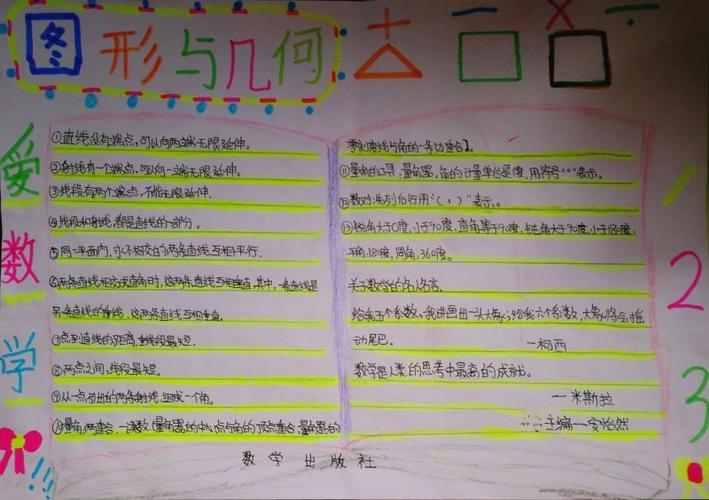 图形与几何
爱数学
123
①直线没有端点，可以向两端无限延伸。
②射线有一个端点，可以向一端无限延伸。
③线段有两个端点，不能无限延伸。
④线段和射线，都是直线的一部分。
⑤同一平面内，永不相交的两条直线互相平行。
⑥两条直线相交成直角时，这两条直线互相垂直，其中，一条直线是
另一条直线的垂线，这两条直线互相垂直。
⑦点到直线的距离，垂线段最短。
⑧两点之间，线段最短。
⑨从一点引出的两条射线，组成一个角。
⑩量角，两重合，一读数（量角器的中心点与角的顶点重合，量角器的
零刻度线与角的一条边重合）。
⑪量角的工具：量角器。角的计量单位是度，用符号“°”表示。
⑫数对：先列后行用“（，）”表示。
⑬锐角大于0度，小于90度，直角等于90度，钝角大于90度，小于180度，
平角，180度，周角，360度。
关于数学的名人名言。
给我五个系数，我讲画出一头大象；给我六个系数，大象将会摇
动尾巴。
—柯西
数学是人类的思考中最高的成就。
—米斯拉
主编—
数学出版社